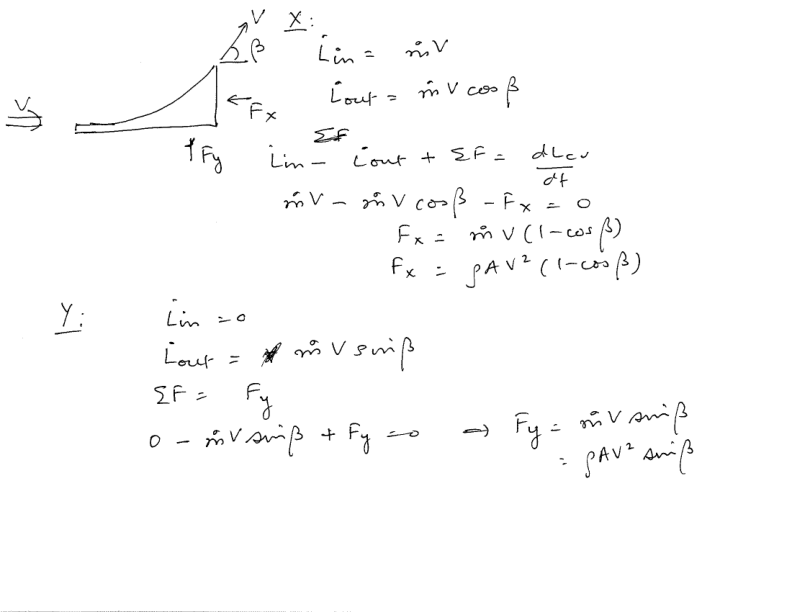 V
β
V
Fx
Fy
X:
L̇in = ṁV
L̇out = ṁ V cos β
ΣF
L̇in - L̇out + ΣF = dLcv/dt
ṁV - ṁV cosβ - Fx = 0
Fx = ṁ V (1-cos β)
Fx = ρAV² (1-cosβ)
Y:
L̇in = 0
L̇out = ṁ V sinβ
ΣF = Fy
0 - ṁV sinβ + Fy = 0 ⇒ Fy = ṁV sinβ
= ρAV² sinβ